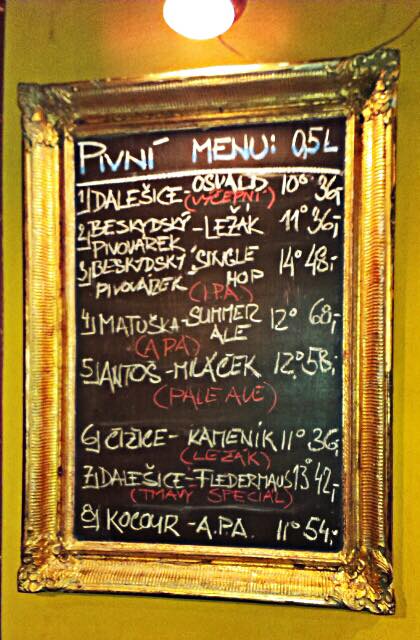 PIVNÍ MENU: 0,5L
1) DALEŠICE - OSVALD 10° 36,-
(VÝČEPNÍ)
2) BESKYDSKÝ - LEŽÁK 11° 36,-
PIVOVÁREK
3) BESKYDSKÝ - SINGLE 14° 48,-
PIVOVÁREK HOP
(IPA)
4) MATUŠKA - SUMMER 12° 68,-
ALE
(APA)
5) ANTOŠ - MILÁČEK 12° 58,-
(PALE ALE)
6) ČIŽICE - KAMENÍK 11° 36,-
(LEŽÁK)
7) DALEŠICE - FLEDERMAUS 13° 42,-
(TMAVÝ SPECIÁL)
8) KOCOUR - A.P.A. 11° 54,-